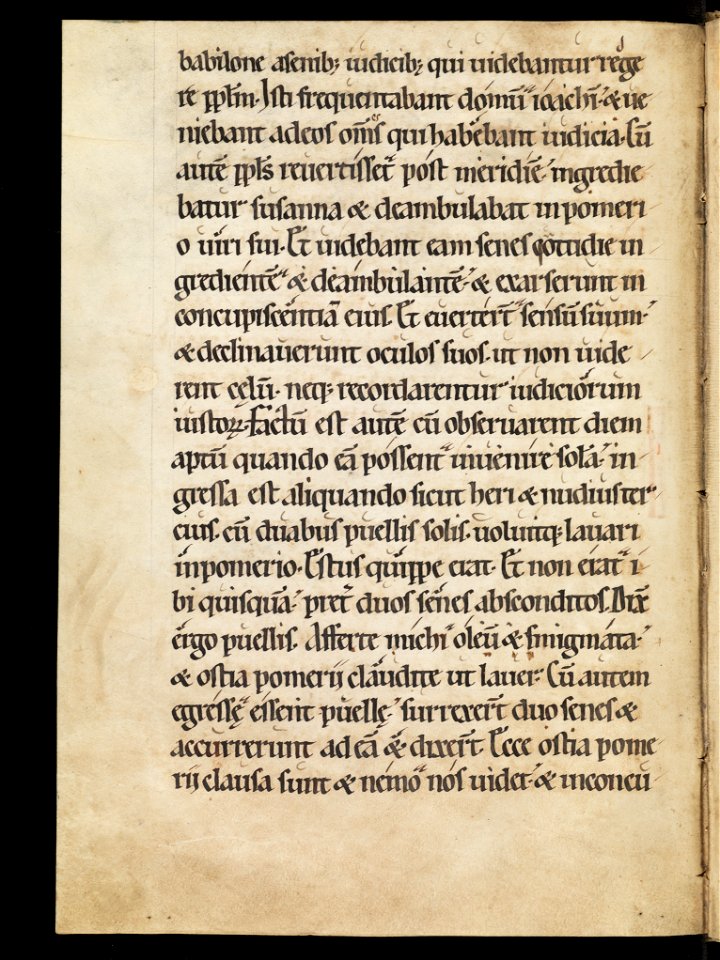 babilone a senib; iudicib; qui uidebantur rege
re ppłm. Isti frequentabant domū ioachī. & ue
niebant ad eos om̄s qui habebant iudicia. Cū
autē ppłs reuertisset̄ post meridiē. ingredie
batur susanna & deambulabat in pomeri
o uiri sui. Et uidebant eam senes cottidie in
gredientē & deambulantē. & exarserunt in
concupiscentiā eius. Et euerter̄t sensū suum.
& declinauerunt oculos suos. ut non uide
rent cęlū. neq; recordarentur iudiciorum
iustoꝝ. Factū est autē cū obseruarent diem
aptū quando eā possent inuenire solā. in
gressa est aliquando sicut heri & nudius ter
cius. cū duabus puellis solis. uoluitq; lauari
in pomerio. Estus quippe erat. Et non erat i
bi quisquā. pret̄ duos senes absconditos. Dix̄
ergo puellis. Afferte michi oleū & smigmata.
& ostia pomerij claudite ut lauer. Cū autem
egressę essent puellę. surrexer̄t duo senes &
accurrerunt ad eā & dixer̄t. Ecce ostia pome
rij clausa sunt & nemo nos uidet. & in concu